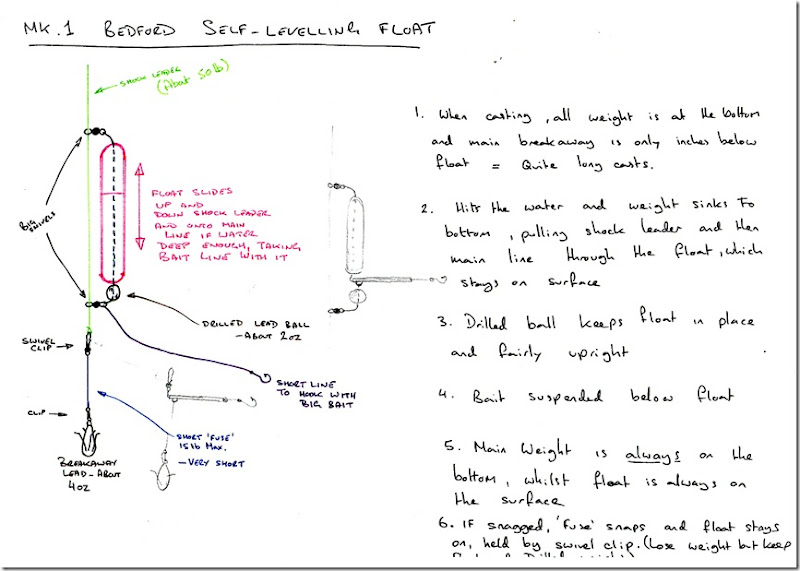 MK.1 BEDFORD SELF-LEVELLING FLOAT
SHOCK LEADER
(About 50lb)
BIG
SWIVELS
FLOAT SLIDES
UP AND
DOWN SHOCK LEADER
AND ONTO MAIN
LINE IF WATER
DEEP ENOUGH, TAKING
BAIT LINE WITH IT
DRILLED LEAD BALL
-ABOUT 2oz
SWIVEL
CLIP
SHORT LINE
TO HOOK WITH
BIG BAIT
CLIP
SHORT 'FUSE'
15lb Max.
-VERY SHORT
BREAKAWAY
LEAD-ABOUT
4oz
1. When casting, all weight is at the bottom
and main breakaway is only inches below
float = Quite long casts.
2. Hits the water and weight sinks To
bottom, pulling shock leader and then
main line through the float, which
stays on surface
3. Drilled ball keeps float in place
and fairly upright
4. Bait suspended below float
5. Main Weight is always on the
bottom, whilst float is always on
the surface
6. IF snagged, 'fuse' snaps and float stays
on, held by swivel clip. (Lose weight but keep